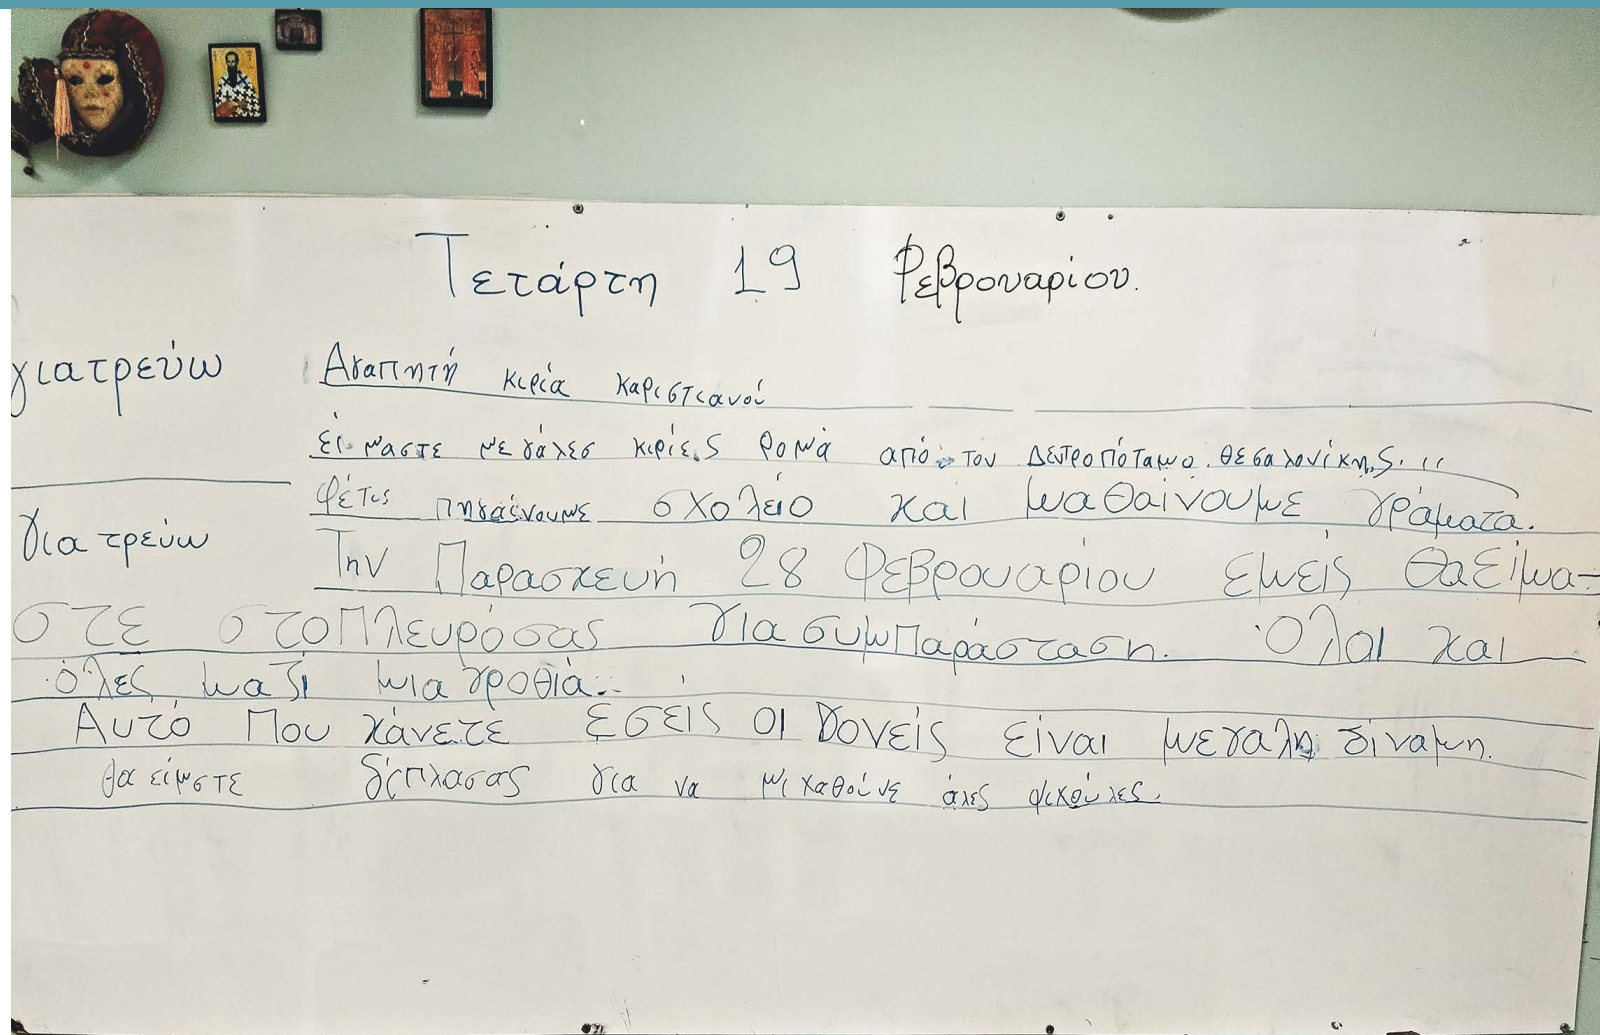 Τετάρτη 19 Φεβρουαρίου.
γιατρεύω
Αγαπητή κιρία καριστιανού
εί μαστε με γάλεσ κιρίες ρομά από τον Δετροπόταμο. θεσαλονίκης. ιι
φέτις πηγαίνουμε σχολείο και μαθαίνουμε γράματα.
γιατρεύω
Την Παρασκευή 28 Φεβρουαρίου εμείς θαείμα-
στε στοπλευρόσας γιασυμπαράσταση. Όλοι και
όλες μαζί μια γροθιά..
Αυτό που κάνετε εσείς οι γονείς είναι μεγαλη δίναμη.
θα είμστε δίπλασας για να μι χαθούνε άλες ψιχούλες.